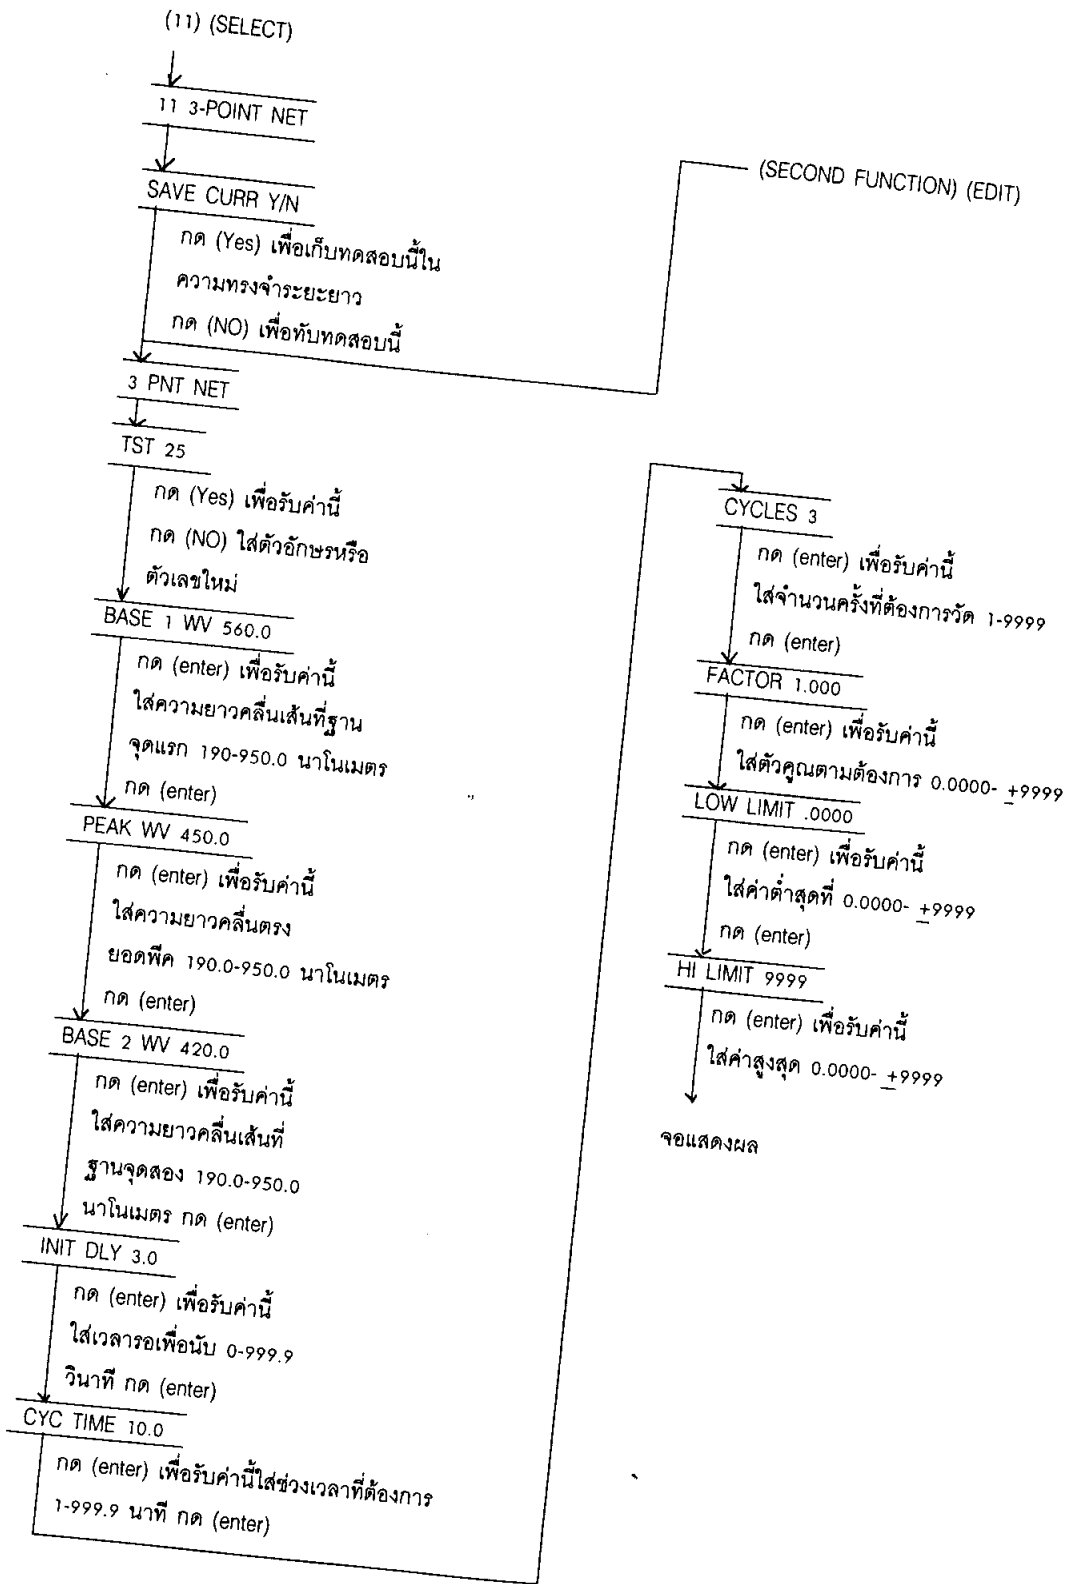 (11) (SELECT)
11 3-POINT NET
SAVE CURR Y/N
กด (Yes) เพื่อเก็บทดสอบนี้ใน
ความทรงจำระยะยาว
กด (NO) เพื่อทับทดสอบนี้
(SECOND FUNCTION) (EDIT)
3 PNT NET
TST 25
กด (Yes) เพื่อรับค่านี้
กด (NO) ใส่ตัวอักษรหรือ
ตัวเลขใหม่
BASE 1 WV 560.0
กด (enter) เพื่อรับค่านี้
ใส่ความยาวคลื่นเส้นที่ฐาน
จุดแรก 190-950.0 นาโนเมตร
กด (enter)
PEAK WV 450.0
กด (enter) เพื่อรับค่านี้
ใส่ความยาวคลื่นตรง
ยอดพีค 190.0-950.0 นาโนเมตร
กด (enter)
BASE 2 WV 420.0
กด (enter) เพื่อรับค่านี้
ใส่ความยาวคลื่นเส้นที่
ฐานจุดสอง 190.0-950.0
นาโนเมตร กด (enter)
INIT DLY 3.0
กด (enter) เพื่อรับค่านี้
ใส่เวลารอเพื่อนับ 0-999.9
วินาที กด (enter)
CYC TIME 10.0
กด (enter) เพื่อรับค่านี้ใส่ช่วงเวลาที่ต้องการ
1-999.9 นาที กด (enter)
CYCLES 3
กด (enter) เพื่อรับค่านี้
ใส่จำนวนครั้งที่ต้องการวัด 1-9999
กด (enter)
FACTOR 1.000
กด (enter) เพื่อรับค่านี้
ใส่ตัวคูณตามต้องการ 0.0000- ±9999
LOW LIMIT .0000
กด (enter) เพื่อรับค่านี้
ใส่ค่าต่ำสุดที่ 0.0000- ±9999
กด (enter)
HI LIMIT 9999
กด (enter) เพื่อรับค่านี้
ใส่ค่าสูงสุด 0.0000- ±9999
จอแสดงผล